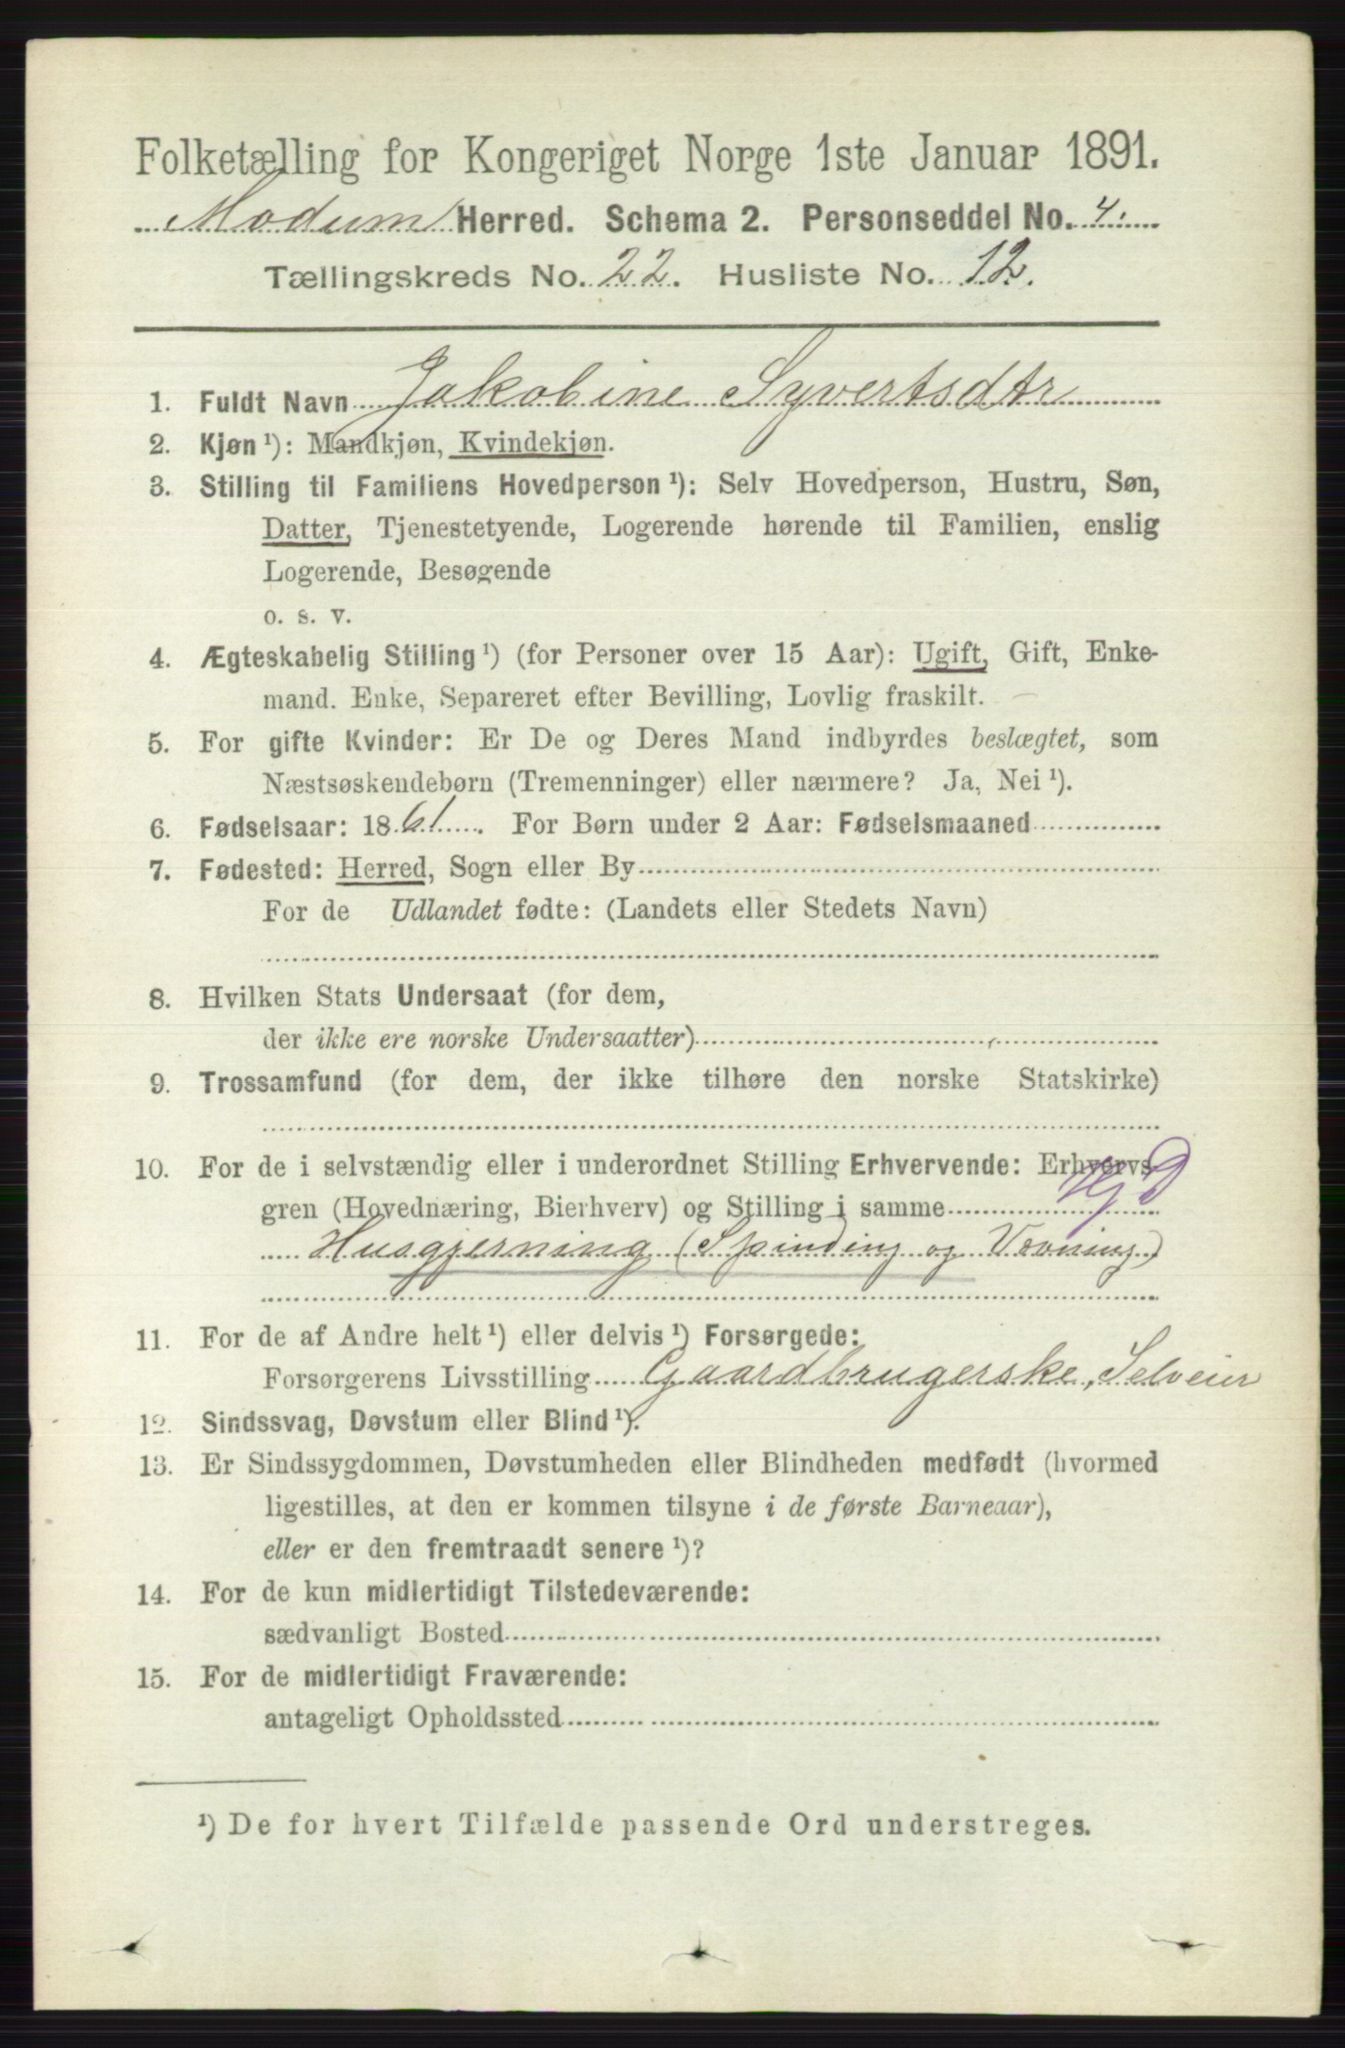 Folketælling for Kongeriget Norge 1ste Januar 1891.
Modum Herred. Schema 2. Personseddel No. 4.
Tællingskreds No. 22. Husliste No. 12.
1. Fuldt Navn Jakobine Syvertsdtr
2. Kjøn ¹): Mandkjøn, Kvindekjøn.
3. Stilling til Familiens Hovedperson ¹): Selv Hovedperson, Hustru, Søn,
Datter, Tjenestetyende, Logerende hørende til Familien, enslig
Logerende, Besøgende
o. s. v.
4. Ægteskabelig Stilling ¹) (for Personer over 15 Aar): Ugift, Gift, Enke-
mand. Enke, Separeret efter Bevilling, Lovlig fraskilt.
5. For gifte Kvinder: Er De og Deres Mand indbyrdes beslægtet, som
Næstsøskendebørn (Tremenninger) eller nærmere? Ja, Nei ¹).
6. Fødselsaar: 1861. For Børn under 2 Aar: Fødselsmaaned
7. Fødested: Herred, Sogn eller By
For de Udlandet fødte: (Landets eller Stedets Navn)
8. Hvilken Stats Undersaat (for dem,
der ikke ere norske Undersaatter)
9. Trossamfund (for dem, der ikke tilhøre den norske Statskirke)
10. For de i selvstændig eller i underordnet Stilling Erhvervende: Erhvervs-
gren (Hovednæring, Bierhverv) og Stilling i samme
Husgjerning (Spinding og Vævning)
11. For de af Andre helt ¹) eller delvis ¹) Forsørgede:
Forsørgerens Livsstilling Gaardbrugerske, Selveier
12. Sindssvag, Døvstum eller Blind ¹).
13. Er Sindssygdommen, Døvstumheden eller Blindheden medfødt (hvormed
ligestilles, at den er kommen tilsyne i de første Barneaar),
eller er den fremtraadt senere ¹)?
14. For de kun midlertidigt Tilstedeværende:
sædvanligt Bosted
15. For de midlertidigt Fraværende:
antageligt Opholdssted
¹) De for hvert Tilfælde passende Ord understreges.